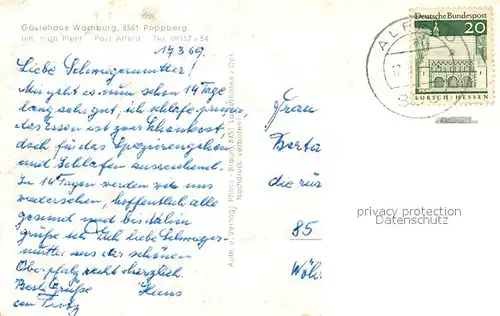 Gästehaus Wachburg, 8561 Poppberg
Inh. Post Alfeld Tel. 09157 - 54
19.3.69.
Liebe Schwiegermutter!
Mir geht es nun schon 14 Tage
lang sehr gut, ich schlafe prima
das Essen ist zwar Schonkost
doch für das Spazierengehen
und Schlafen ausreichend.
In 14 Tagen werden wir uns
wiedersehen, hoffentlich alle
gesund und bis dahin
grüße ich Dich liebe Schwieger-
mutter aus der schönen
Oberpfalz recht herzlich.
Beste Grüße Hans
Aufn. u. Verlag: Photo - Braun, 8451 - Opf.
Nachdruck verboten
Frau
Berta
die
85
Deutsche Bundespost
20
LORSCH/HESSEN
ALF
privacy protection
Datenschutz